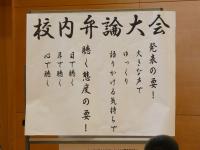 校内弁論大会
発表の要！
大きな声で
ゆっくり
語りかける気持ちで
聴く態度の要！
目で聴く
耳で聴く
心で聴く